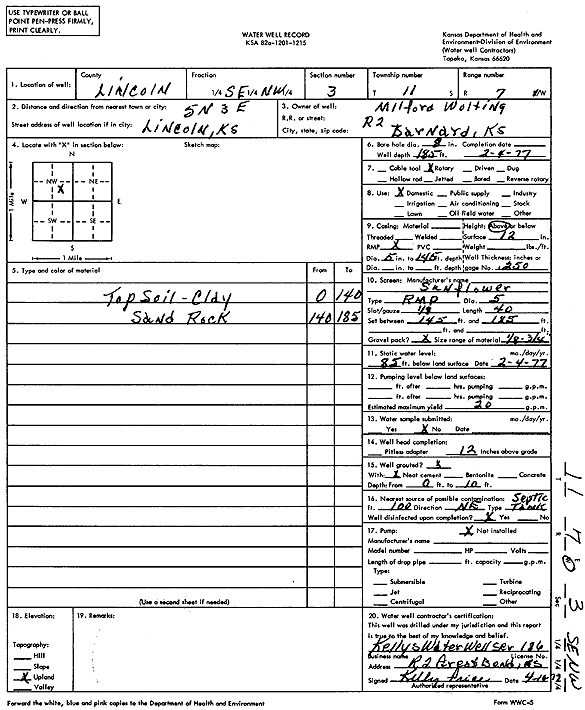 USE TYPEWRITER OR BALL
POINT PEN-PRESS FIRMLY,
PRINT CLEARLY.
WATER WELL RECORD
KSA 82a-1201-1215
Kansas Department of Health and
Environment-Division of Environment
(Water well Contractors)
Topeka, Kansas 66620
1. Location of well:
County
LINCOLN
Fraction
1/4 SE 1/4 NW 1/4
Section number
3
Township number
T 11 S
Range number
R 7 E/W
2. Distance and direction from nearest town or city: 5N 3E
Street address of well location if in city: LINCOLN, KS
3. Owner of well: Milford Wolting
R.R. or street: R2
City, state, zip code: Barnard, KS
4. Locate with "X" in section below:
Sketch map:
N
NW NE
X
W E
SW SE
S
1 Mile
1 Mile
6. Bore hole dia. 8 in. Completion date
Well depth 185 ft. 2-4-77
7. Cable tool X Rotary Driven Dug
Hollow rod Jetted Bored Reverse rotary
8. Use: X Domestic Public supply Industry
Irrigation Air conditioning Stock
Lawn Oil field water Other
9. Casing: Material Height: Above or below
Threaded Welded Surface 12 in.
RMP X PVC Weight lbs./ft.
Dia. 5 in. to 145 ft. depth Wall Thickness: inches or
Dia. in. to ft. depth gage No. .250
5. Type and color of material
From To
Top Soil - Clay 0 140
Sand Rock 140 185
(Use a second sheet if needed)
10. Screen: Manufacturer's name
Sunflower
Type RMP Dia. 5
Slot/gauze 1/8 Length 40
Set between 145 ft. and 185 ft.
ft. and ft.
Gravel pack? X Size range of material 1/8-3/16
11. Static water level: mo./day/yr.
85 ft. below land surface Date 2-4-77
12. Pumping level below land surfaces:
ft. after hrs. pumping g.p.m.
ft. after hrs. pumping g.p.m.
Estimated maximum yield 20 g.p.m.
13. Water sample submitted: mo./day/yr.
Yes X No Date
14. Well head completion:
Pitless adapter 12 Inches above grade
15. Well grouted? X
With: X Neat cement Bentonite Concrete
Depth: From 0 ft. to 10 ft.
16. Nearest source of possible contamination: Septic
ft. 100 Direction NE Type Tank
Well disinfected upon completion? X Yes No
17. Pump: X Not installed
Manufacturer's name
Model number HP Volts
Length of drop pipe ft. capacity g.p.m.
Type:
Submersible Turbine
Jet Reciprocating
Centrifugal Other
18. Elevation:
Topography:
Hill
Slope
X Upland
Valley
19. Remarks:
20. Water well contractor's certification:
This well was drilled under my jurisdiction and this report
is true to the best of my knowledge and belief.
Kellys Water Well Ser 186
Business name License No.
Address R2 Great Bend, KS
Signed Kelly Price Date
Authorized representative
Forward the white, blue and pink copies to the Department of Health and Environment
Form WWC-5
T 11
R 7 E
Sec 3
1/4 1/4 1/4 SE NW